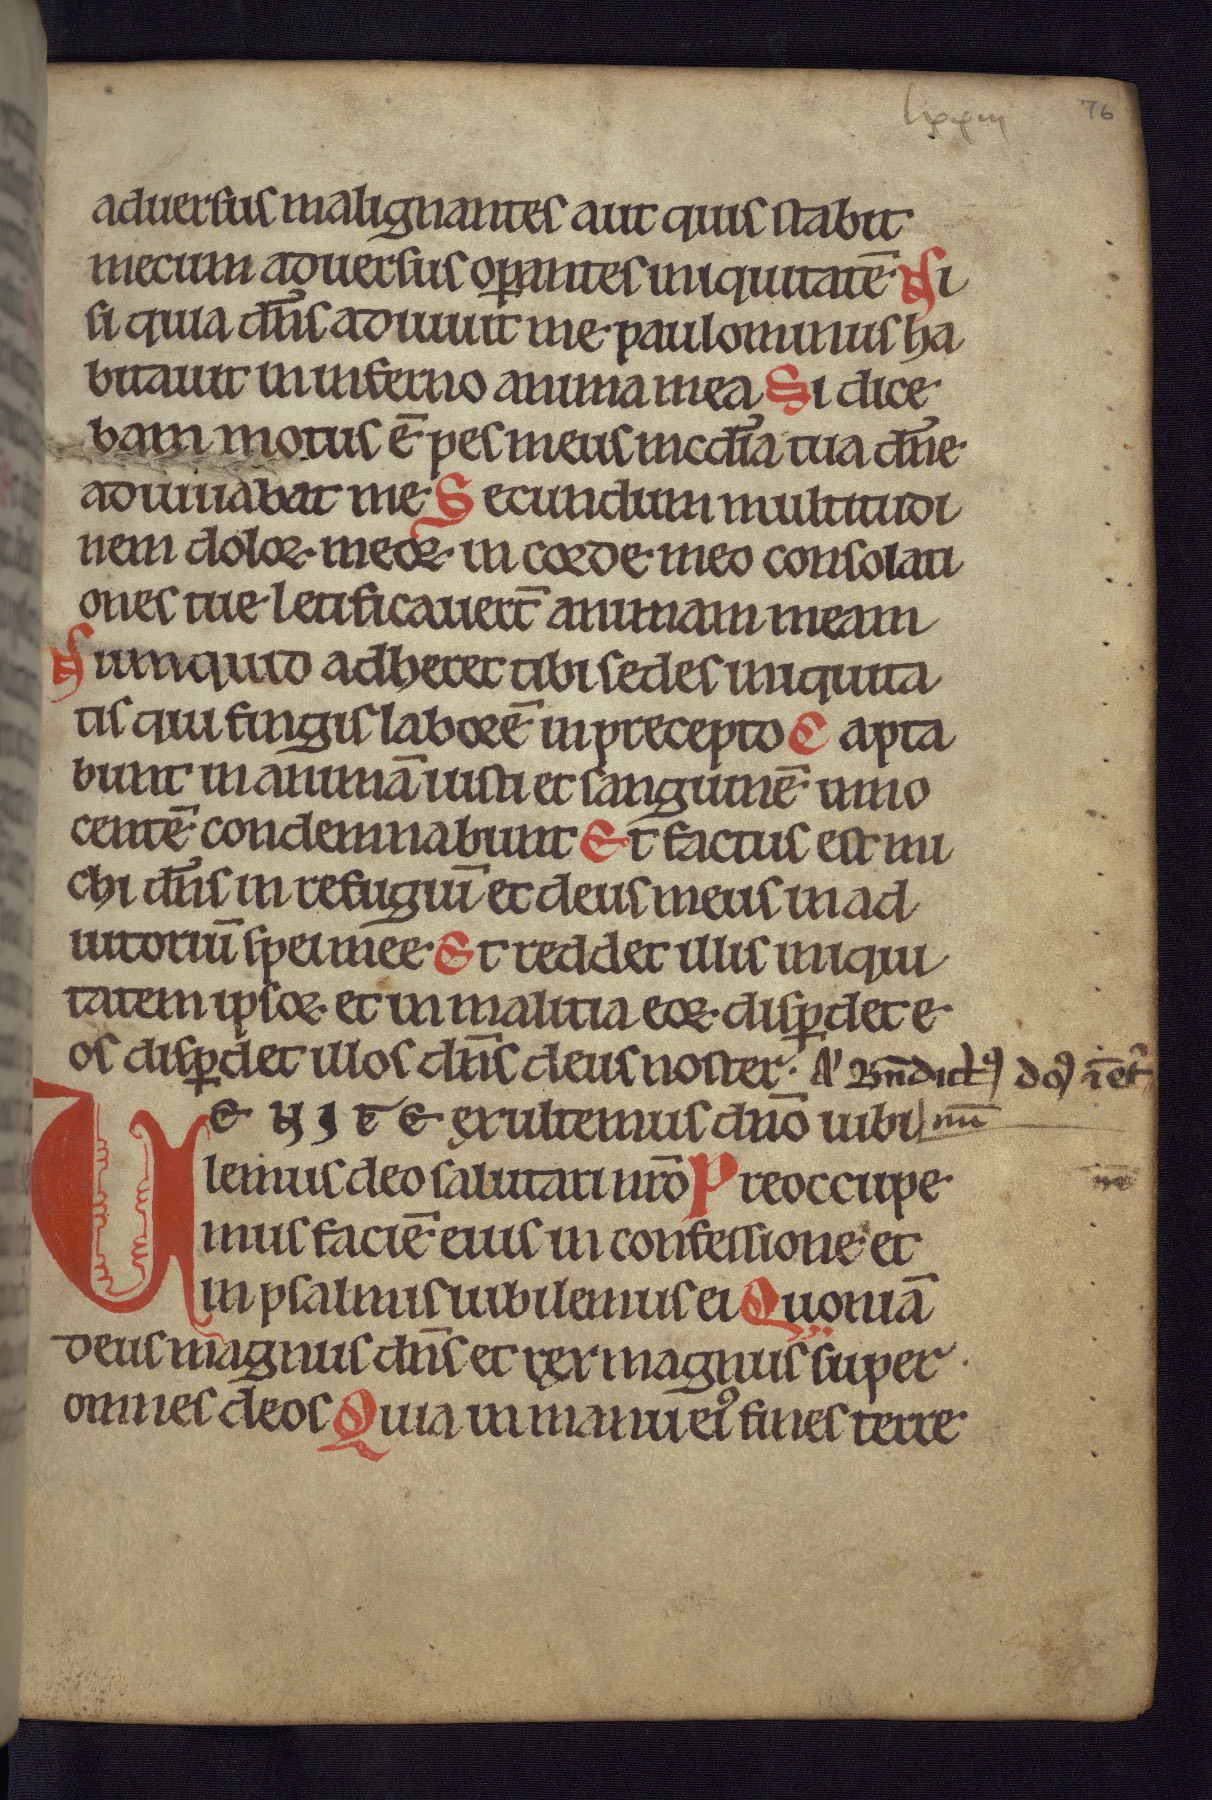 lxxiii 76
aduersus malignantes aut quis stabit
mecum aduersus oꝑantes iniquitatē Ni
si quia dn̄s adiuuit me paulominus ha
bitauit in inferno anima mea Si dice
bam motus ē pes meus mcdīa tua dn̄e
adiuuabat me Secundum multitudi
nem doloꝝ meoꝝ in corde meo consolati
ones tue letificauert̄ animam meam
Numquid adheret tibi sedes iniquita
tis qui fingis laborē in precepto Capta
bunt in animā iusti et sanguinē inno
centē condemnabunt Et factus est mi
chi dn̄s in refugiū et deus meus in ad
iutoriū spei mee Et reddet illis iniqui
tatem ipsoꝝ et in malitia eoꝝ disꝑdet e
os disꝑdet illos dn̄s deus noster
UENITE exultemus dn̄o iubi
lemus deo salutari nr̄o Preoccupe
mus faciē eius in confessione et
in psalmis iubilemus ei Quoniā
deus magnus dn̄s et rex magnus super
omnes deos Quia in manu eiꝰ fines terre